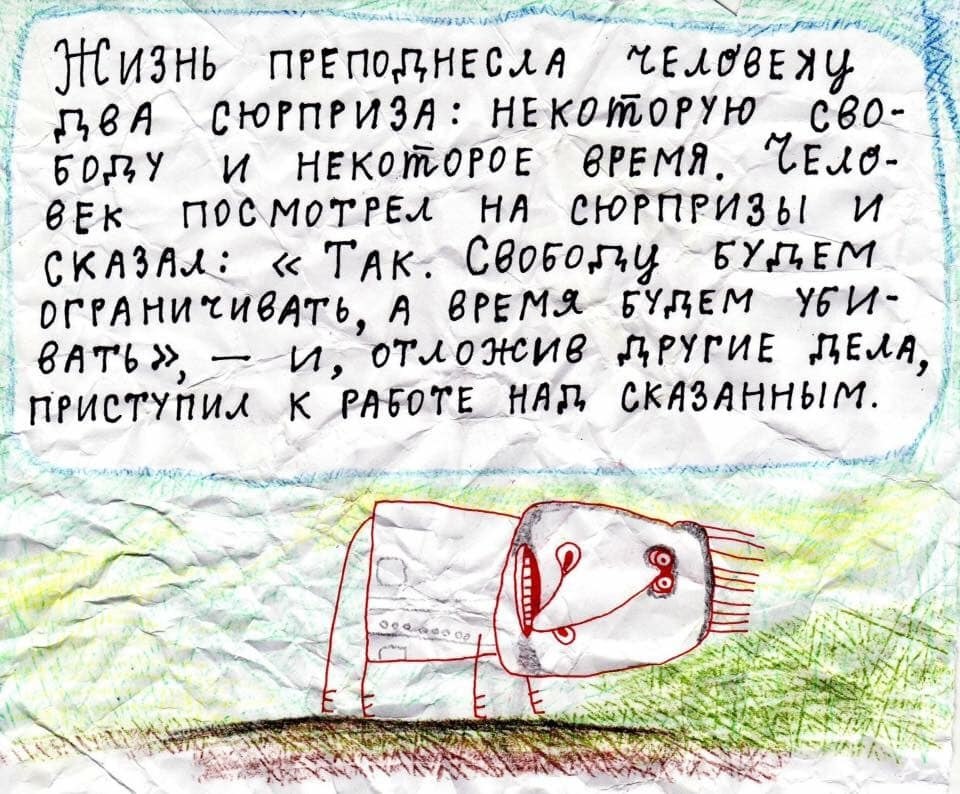 Жизнь преподнесла человеку
два сюрприза: некоторую сво-
боду и некоторое время. Чело-
век посмотрел на сюрпризы и
сказал: «Так. Свободу будем
ограничивать, а время будем уби-
вать», — и, отложив другие дела,
приступил к работе над сказанным.